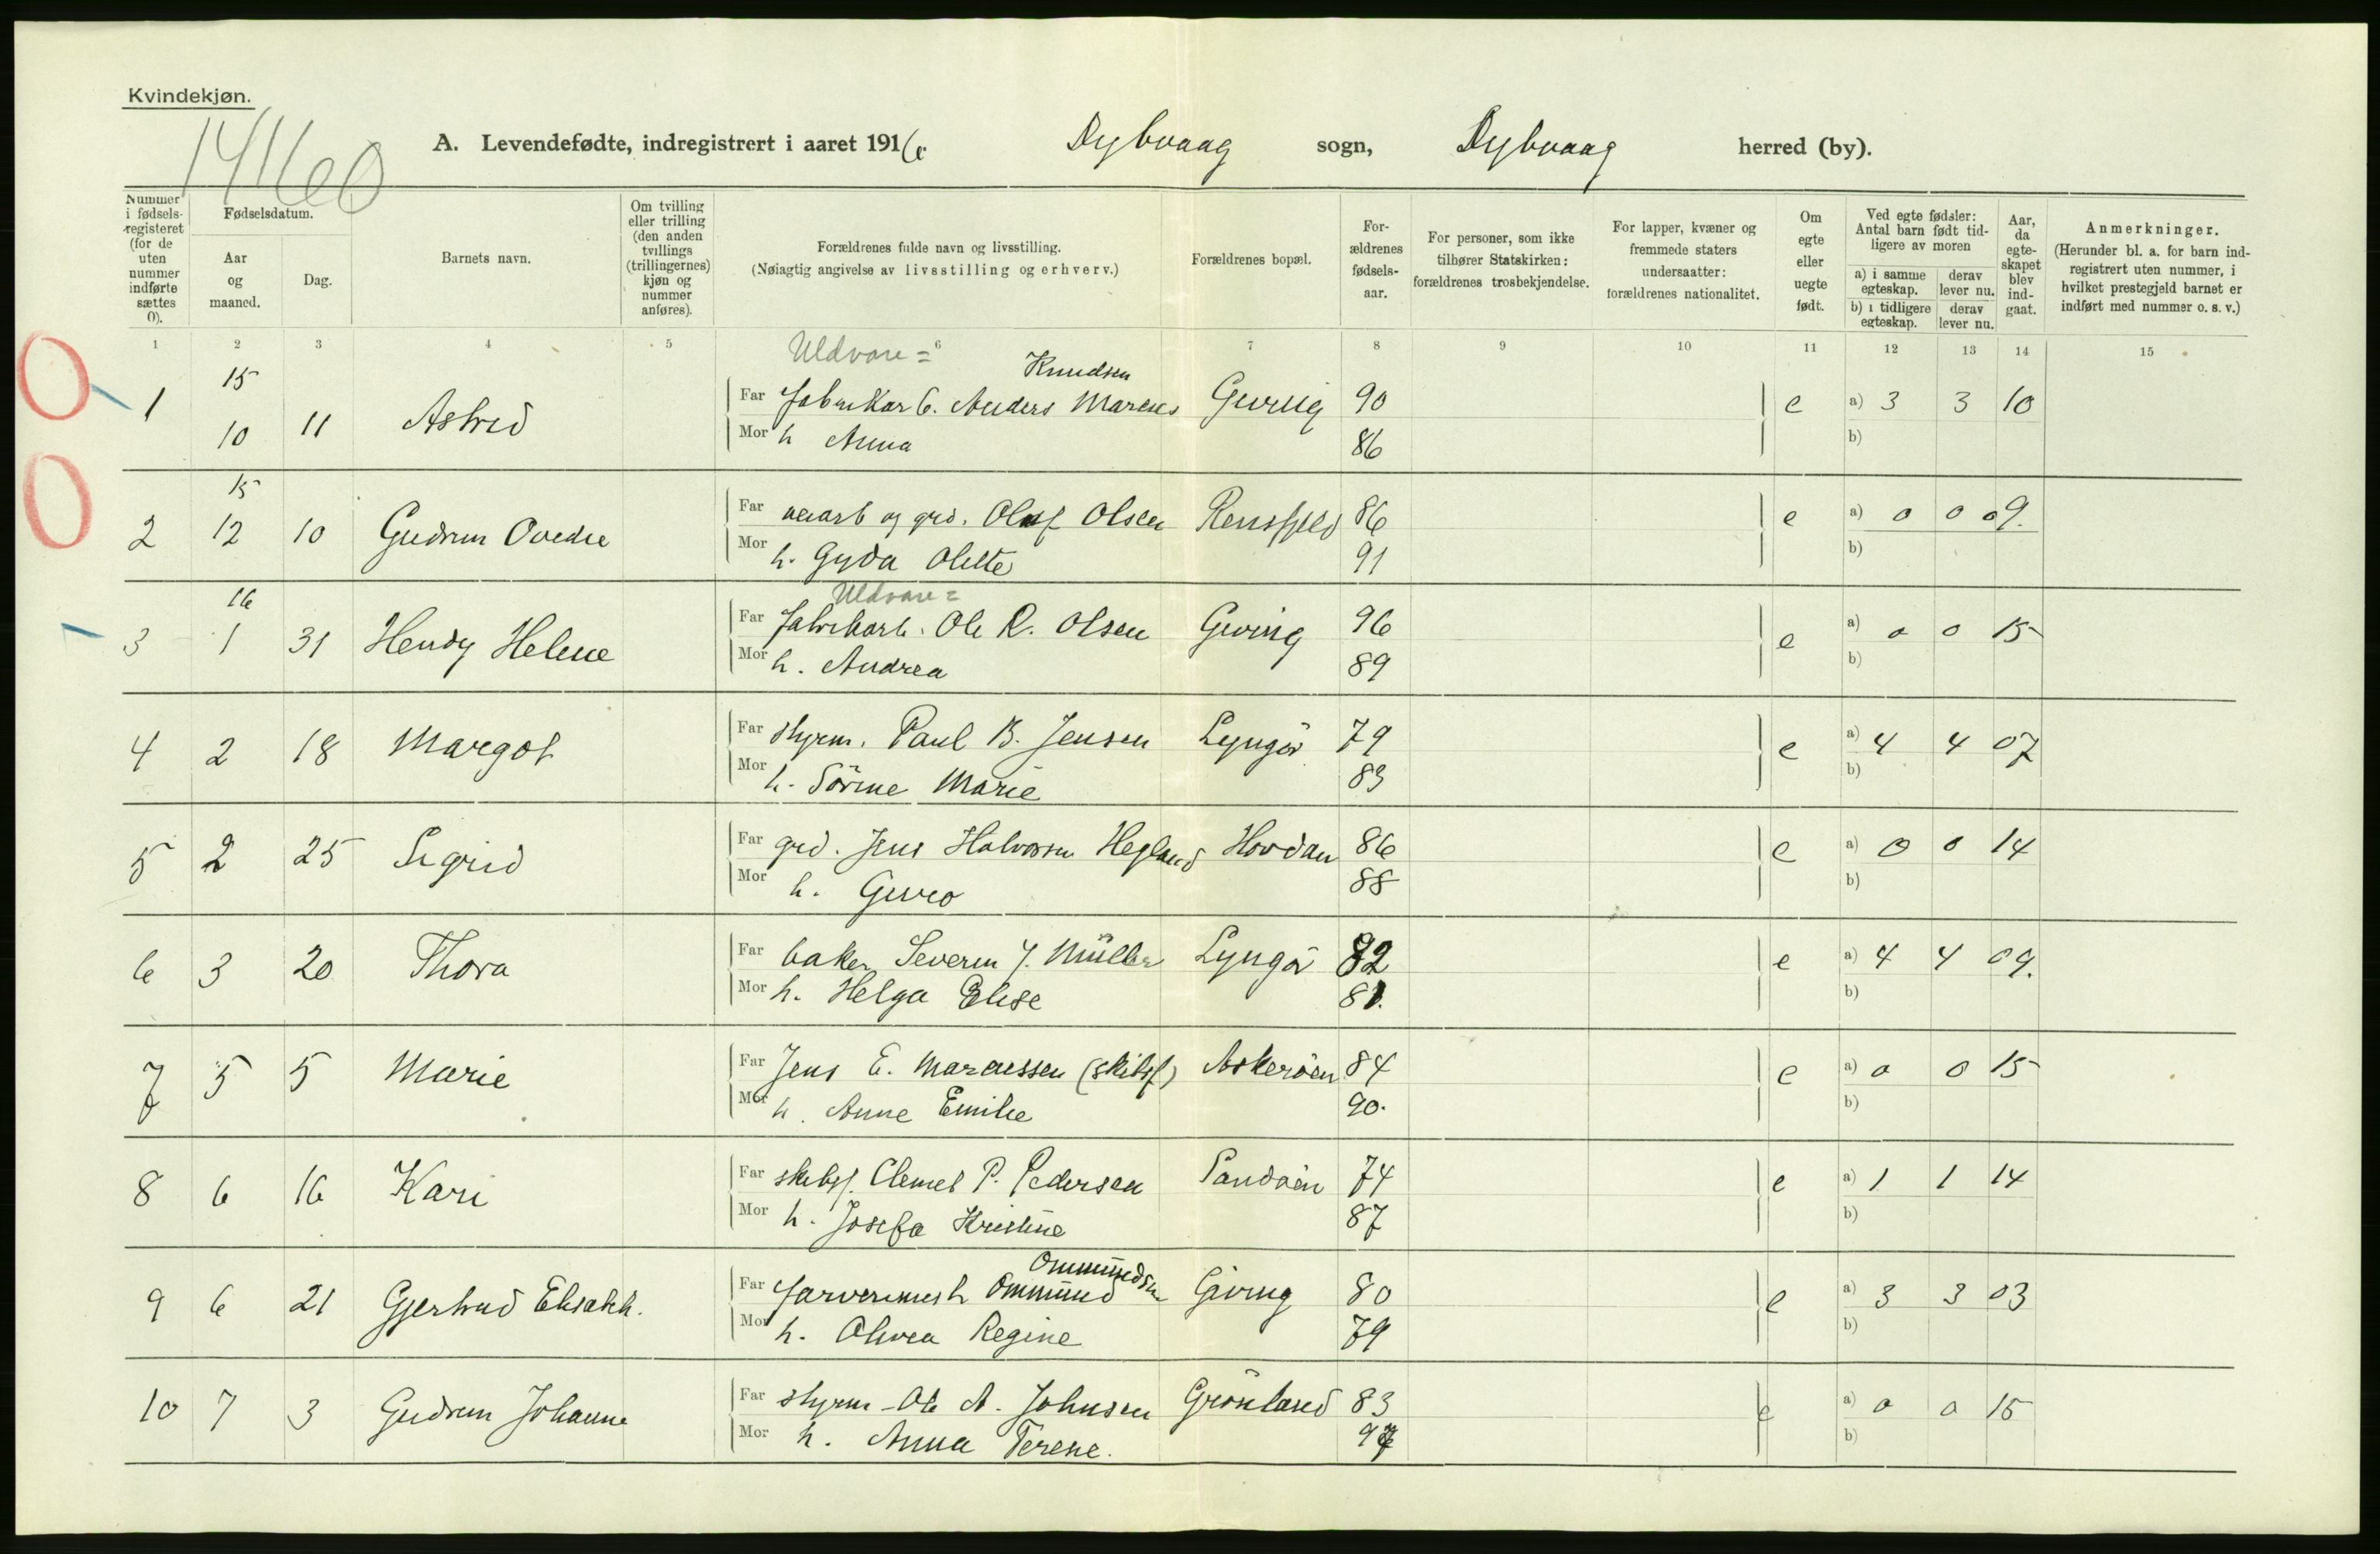 Kvindekjøn.
14160
A. Levendefødte, indregistrert i aaret 1916. Dybvaag sogn, Dybvaag herred (by).
Nummer i fødsels-registeret (for de uten nummer indførte sættes 0).
Fødselsdatum.
Aar og maaned.
Dag.
Barnets navn.
Om tvilling eller trilling (den anden tvillings (trillingernes) kjøn og nummer anføres).
Forældrenes fulde navn og livsstilling.
(Nøiagtig angivelse av livsstilling og erhverv.)
Forældrenes bopæl.
For-ældrenes fødsels-aar.
For personer, som ikke tilhører Statskirken: forældrenes trosbekjendelse.
For lapper, kvæner og fremmede staters undersaatter: forældrenes nationalitet.
Om egte eller uegte født.
Ved egte fødsler: Antal barn født tid-ligere av moren
a) i samme egteskap. derav lever nu.
b) i tidligere egteskap. derav lever nu.
Aar, da egte-skapet blev ind-gaat.
Anmerkninger.
(Herunder bl. a. for barn ind-registrert uten nummer, i hvilket prestegjeld barnet er indført med nummer o. s. v.)
1 2 3 4 5 6 7 8 9 10 11 12 13 14 15
Uldvare=
15 Knudsen
1 10 11 Astrid Far Fabrikarb. Anders Marcus Geving 90 e a) 3 3 10
Mor h Anna 86 b)
15
2 12 10 Gudrun Ovedie Far veiarb og grd. Oluf Olsen Rensfjeld 86 e a) 0 0 09.
Mor h. Gyda Olette 91 b)
16 Uldvare=
3 1 31 Hendy Helene Far Fabrikarb. Ole R. Olsen Geving 96 e a) 0 0 15
Mor h. Andrea 89 b)
4 2 18 Margot Far styrm. Paul B. Jensen Lyngør 79 e a) 4 4 07
Mor h. Sörine Marie 83 b)
5 2 25 Sigrid Far grd. Jens Halvorsen Hegland Hovdan 86 e a) 0 0 14
Mor h. Guro 88 b)
6 3 20 Thora Far baker Severin J. Müller Lyngør 82 e a) 4 4 09.
Mor h. Helga Elise 81. b)
7 5 5 Marie Far Jens E. Marcussen (skibsf) Askerøen 84 e a) 0 0 15
Mor h. Anne Emilie 90. b)
8 6 16 Kari Far skibsf. Clemet P. Pedersen Sandøen 74 e a) 1 1 14
Mor h. Josefa Kristine 87 b)
Ommundsen
9 6 21 Gjertrud Elisabth. Far farverimest Ommund Geving 80 e a) 3 3 03
Mor h. Olivea Regine 79 b)
10 7 3 Gudrun Johanne Far styrm - Ole A. Johnsen Grønland 83 e a) 0 0 15
Mor h. Anna Terese. b)